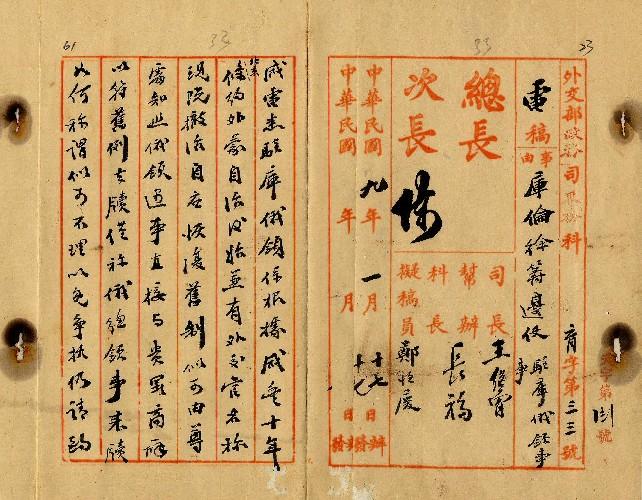 23
字第 號
外交部政務司 科 育字第三三號
電稿
事由
庫倫徐籌邊使 駐庫俄領事
事
總長
次長
司長 王繼曾
幫辦 長福
科長
擬稿員 鄭 慶
中華民國九年一月廿七日辦
中華民國 年 月 日發
33
咸電悉駐庫俄領係根據咸豐十年
北京條約外蒙自治後始兼有外交官名稱
現既撤治自應恢復舊制似可由尊
處知照俄領遇事直接與貴署商辦
以符舊例去牘但稱俄總領事來牘
如何稱謂似可不理以免爭執仍請酌
61